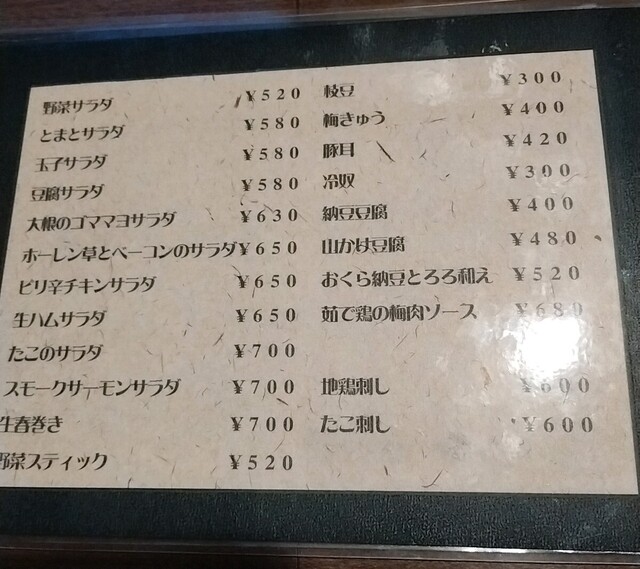 野菜サラダ ¥520
とまとサラダ ¥580
玉子サラダ ¥580
豆腐サラダ ¥580
大根のゴママヨサラダ ¥630
ホーレン草とベーコンのサラダ ¥650
ピリ辛チキンサラダ ¥650
生ハムサラダ ¥650
たこのサラダ ¥700
スモークサーモンサラダ ¥700
生春巻き ¥700
野菜スティック ¥520
枝豆 ¥300
梅きゅう ¥400
豚耳 ¥420
冷奴 ¥300
納豆豆腐 ¥400
山かけ豆腐 ¥480
おくら納豆とろろ和え ¥520
茹で鶏の梅肉ソース ¥680
地鶏刺し ¥600
たこ刺し ¥600